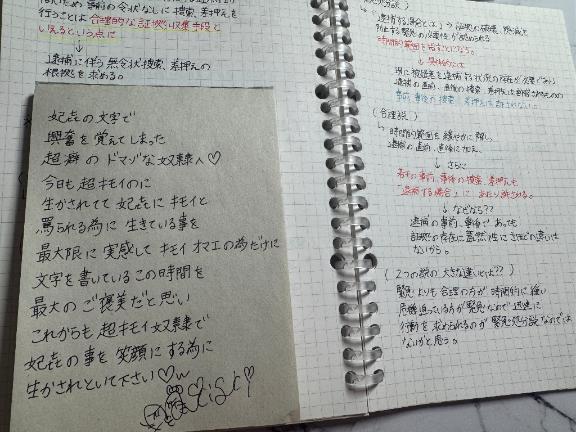 事前の令状なしに捜索、差押えを
行うことは合理的な証拠収集手段と
いえるという点に
↓
逮捕に伴う無令状捜索、差押えの
根拠を求める。
妃㐂の文字で
興奮を覚えてしまった
超癖のドマゾな奴隷へ♡
今日も超キモイのに
生かされてて妃㐂にキモイと
罵られる為に生きている事を
最大限に実感してキモイオマエの為だけに
文字を書いているこの時間を
最大のご褒美だと思い
これからも超キモイ奴隷で
妃㐂の事を笑顔にする為に
生かされといて下さい♡w
「逮捕する場合」とは、
時間的範囲を
↓
逮捕の直前、直後の捜索、差押えは
事前、事後の捜索、差押えは許されない。
(合理説)
↳ 時間的範囲を緩やかに解し、
逮捕の直前、直後に加え、
↓ さらに
事前、事後の捜索、差押えも
「逮捕する場合」にあたり許される。
↓ なぜなら??
逮捕の事前、事後であっても
証拠の存在に蓋然性にさほどの違いは
ないから。
(2つの説の大きな違いとは??)
緊急よりも合理の方が時間的に緩い
危機迫っている方が緊急なので迅速に
行動を求められるのが緊急処分説なのでは
ないかと思う。